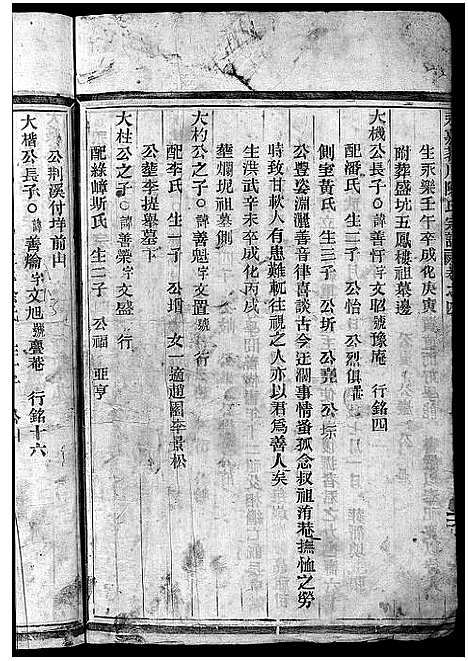 生永樂壬午卒成化庚寅
附葬盛坑五鳳樓祖墓邊
大機公長子○諱善 字文昭號豫庵 行銘四
配潘氏 生二子 公治 公烈俱
側室黃氏 生三子 公圻 公堯 公琮
公豐姿洒麗善音律喜談古今迂濶事情蚤孤念叔祖淯菴撫恤之勞
時致甘軟人有患難輒往視之人亦以君為善人矣
生洪武辛未卒成化丙戌
葬爛坭祖墓側
大杓公之子○諱善 字文置號 行
配李氏 生一子 公增 女一適廻圍李景松
公葬李提舉墓下
大柱公之子○諱善築字文盛 行
配綠嶂斯氏 生二子 公福 亞亨
公荆溪付垟前山
大楷公長子○諱善爚字文旭號慶菴 行銘十六